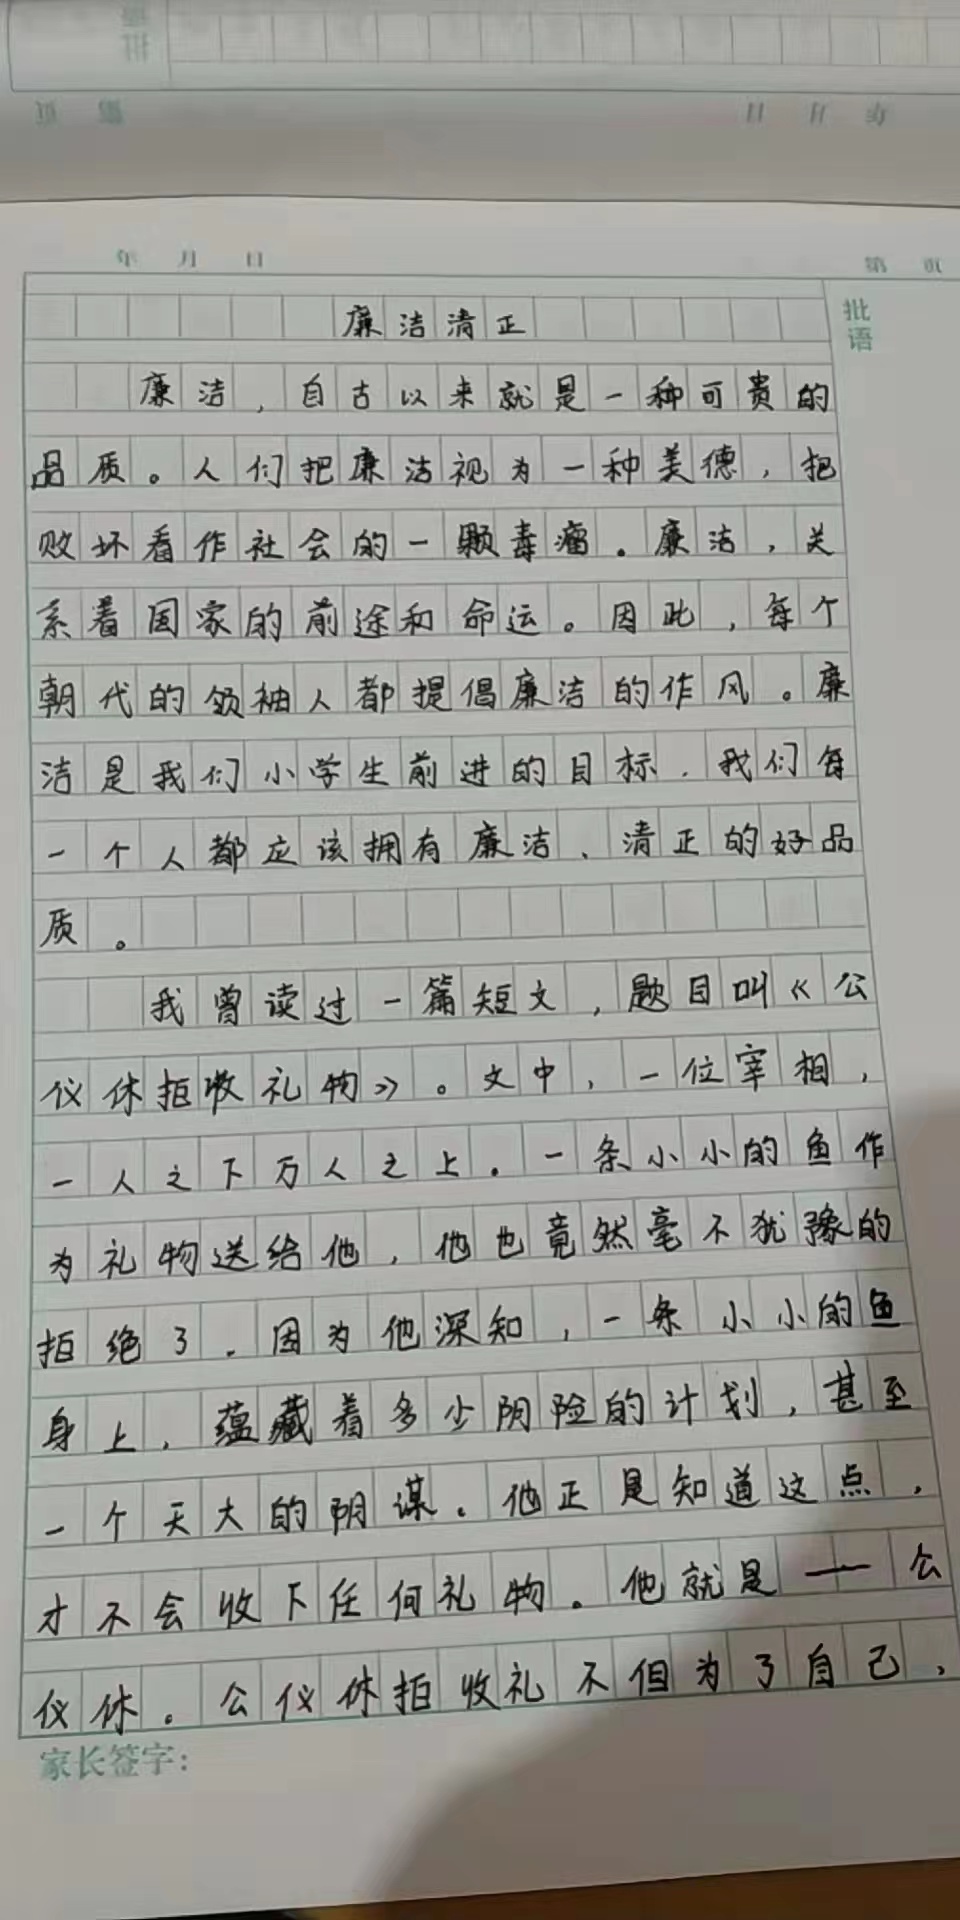 年 月 日
第 页
批语
廉洁清正
廉洁，自古以来就是一种可贵的
品质。人们把廉洁视为一种美德，把
败坏看作社会的一颗毒瘤。廉洁，关
系着国家的前途和命运。因此，每个
朝代的领袖人都提倡廉洁的作风。廉
洁是我们小学生前进的目标．我们每
一个人都应该拥有廉洁、清正的好品
质。
我曾读过一篇短文，题目叫《公
仪休拒收礼物》。文中，一位宰相，
一人之下万人之上。一条小小的鱼作
为礼物送给他，他也竟然毫不犹豫的
拒绝了．因为他深知，一条小小的鱼
身上，蕴藏着多少阴险的计划，甚至
一个天大的阴谋。他正是知道这点，
才不会收下任何礼物。他就是——公
仪休。公仪休拒收礼不但为了自己，
家长签字：